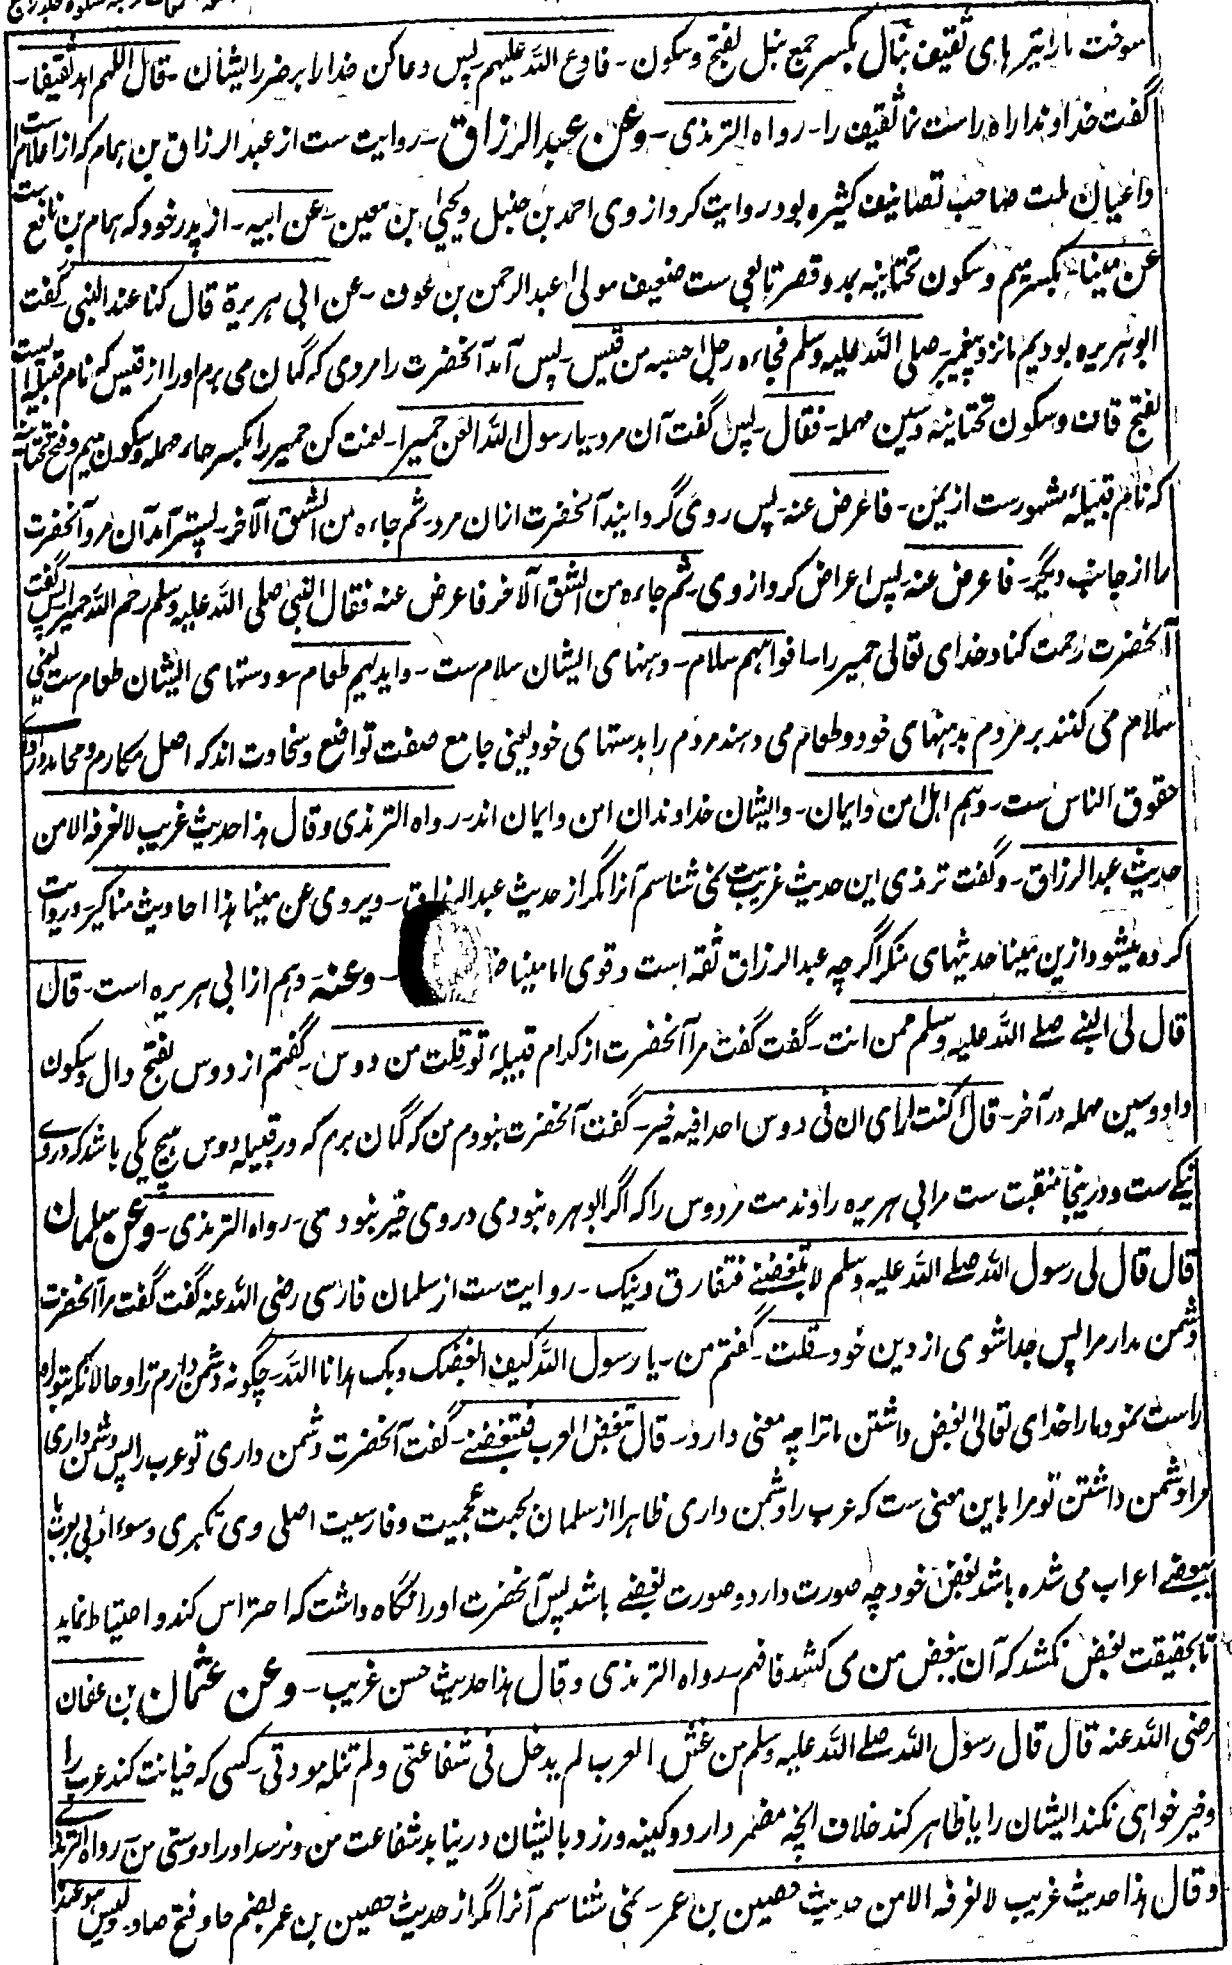 سوخت ما را تیرهای ثقیف نبال بکسر جمع نبل بفتح و سکون ـ فادع الله علیهم ـ پس دعا کن خدا را بر ضرر ایشان ـ قال اللهم اهد ثقیفا ـ
گفت خداوندا راه راست نما ثقیف را ـ رواه الترمذی ـ وعن عبد الرزاق ـ روایت ست از عبد الرزاق بن همام که از اعلام ست
و اعیان ملت صاحب تصانیف کثیره بود روایت کرد از وی احمد بن حنبل و یحیی بن معین ـ عن ابیه ـ از پدر خود که همام بن نافع است
عن میناء بکسر میم و سکون تحتانیه بمد و قصر تابعی ست ضعیف مولی عبد الرحمن بن عوف ـ عن ابی هریرة قال کنا عند النبی ـ گفت
ابو هریره بودیم ما نزد پیغمبر صلی الله علیه وسلم فجاءه رجل احسبه من قیس ـ پس آمد آنحضرت را مردی که گمان می برم او را از قیس که نام قبیله ایست
بفتح قاف و سکون تحتانیه و سین مهمله ـ فقال ـ پس گفت آن مرد ـ یا رسول الله العن حمیرا ـ لعنت کن حمیر را بکسر حاء مهمله و سکون میم و فتح تحتانیه
که نام قبیله مشهور ست از یمن ـ فاعرض عنه ـ پس روی گردانید آنحضرت ازان مرد ـ ثم جاءه من الشق الآخر ـ پستر آمد آن مرد آنحضرت
را از جانب دیگر ـ فاعرض عنه ـ پس اعراض کرد از وی ـ ثم جاءه من الشق الآخر فاعرض عنه فقال النبی صلی الله علیه وسلم رحم الله حمیرا ـ پس گفت
آنحضرت رحمت کناد خدای تعالی حمیر را ـ افواههم سلام ـ دهنهای ایشان سلام ست ـ و ایدیهم طعام ـ و دستهای ایشان طعام ست یعنی
سلام می کنند بر مردم بدهنهای خود و طعام می دهند مردم را بدستهای خود یعنی جامع صفت تواضع و سخاوت اند که اصل مکارم و محامد و ادای
حقوق الناس ست ـ وهم اهل امن و ایمان ـ و ایشان خداوندان امن و ایمان اند ـ رواه الترمذی وقال هذا حدیث غریب لا نعرفه الا من
حدیث عبد الرزاق ـ و گفت ترمذی این حدیث غریب ست نمی شناسم آنرا مگر از حدیث عبد الرزاق ـ ویروی عن مینا هذا احادیث مناکیر ـ و روایت
کرده میشود ازین مینا حدیثهای منکر اگر چه عبد الرزاق ثقه است و قوی اما مینا ـ وعنه ـ وهم از ابی هریره است ـ قال
قال لی النبی صلے الله علیه وسلم ممن انت ـ گفت گفت مرا آنحضرت از کدام قبیلهٔ تو ـ قلت من دوس ـ گفتم از دوس بفتح دال و سکون
واو و سین مهمله در آخر ـ قال ما کنت اری ان فی دوس احدا فیه خیر ـ گفت آنحضرت نبودم من که گمان برم که در قبیله دوس هیچ یکی باشد که در وے
نیکے ست و درینجا منقبت ست مر ابی هریره را و مذمت مر دوس را که اگر ابو هره نبودی در وی خیر نبودمی ـ رواه الترمذی ـ وعن سلمان
قال قال لی رسول الله صلے الله علیه وسلم لا تبغضنے فتفارق دینک ـ روایت ست از سلمان فارسی رضی الله عنه گفت گفت مرا آنحضرت
دشمن مدار مرا پس جدا شوی از دین خود ـ قلت ـ گفتم من ـ یا رسول الله کیف ابغضک وبک هدانا الله ـ چگونه دشمن دارم ترا و حالانکه بتو راه
راست نمود ما را خدای تعالی بغض داشتن ما ترا چه معنی دارد ـ قال تبغض العرب فتبغضنے ـ گفت آنحضرت دشمن داری تو عرب را پس دشمن داری
مرا دشمن داشتن تو مرا باین معنی ست که عرب را دشمن داری ظاهرا از سلمان بجهت عجمیت و فارسیت اصلی وی تکبری و سوء ادبی بعرب یا
ببعضے اعراب می شده باشد بغض خود چه صورت دارد و صورت بغضے باشد پس آنحضرت او را نگاه داشت که احتراس کند و احتیاط نماید
تا بحقیقت بغض نکشد که آن ببغض من می کشد فافهم ـ رواه الترمذی وقال هذا حدیث حسن غریب ـ وعن عثمان بن عفان
رضی الله عنه قال قال رسول الله صلے الله علیه وسلم من غش العرب لم یدخل فی شفاعتی ولم تنله مودتی ـ کسی که خیانت کند عرب را
و خیر خواهی نکند ایشان را یا ظاهر کند خلاف آنچه مضمر دارد و کینه ورزد با ایشان در نیابد شفاعت من و نرسد او را دوستی من ـ رواه الترمذی
وقال هذا حدیث غریب لا نعرفه الا من حدیث حصین بن عمر ـ نمی شناسم آنرا مگر از حدیث حصین بن عمر بضم حا و فتح صاد ـ ولیس هو عند